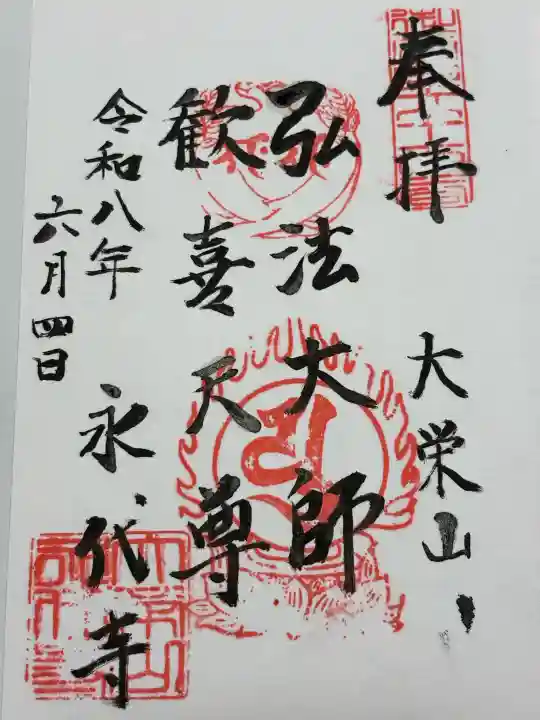 奉拝
大栄山
弘法大師
歓喜天尊
令和八年
六月四日
永代寺